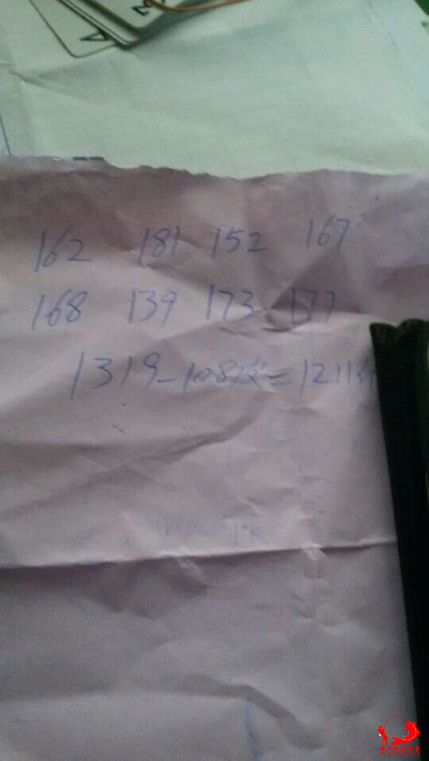 162 181 152 167
168 139 173 177
1319-108=1211